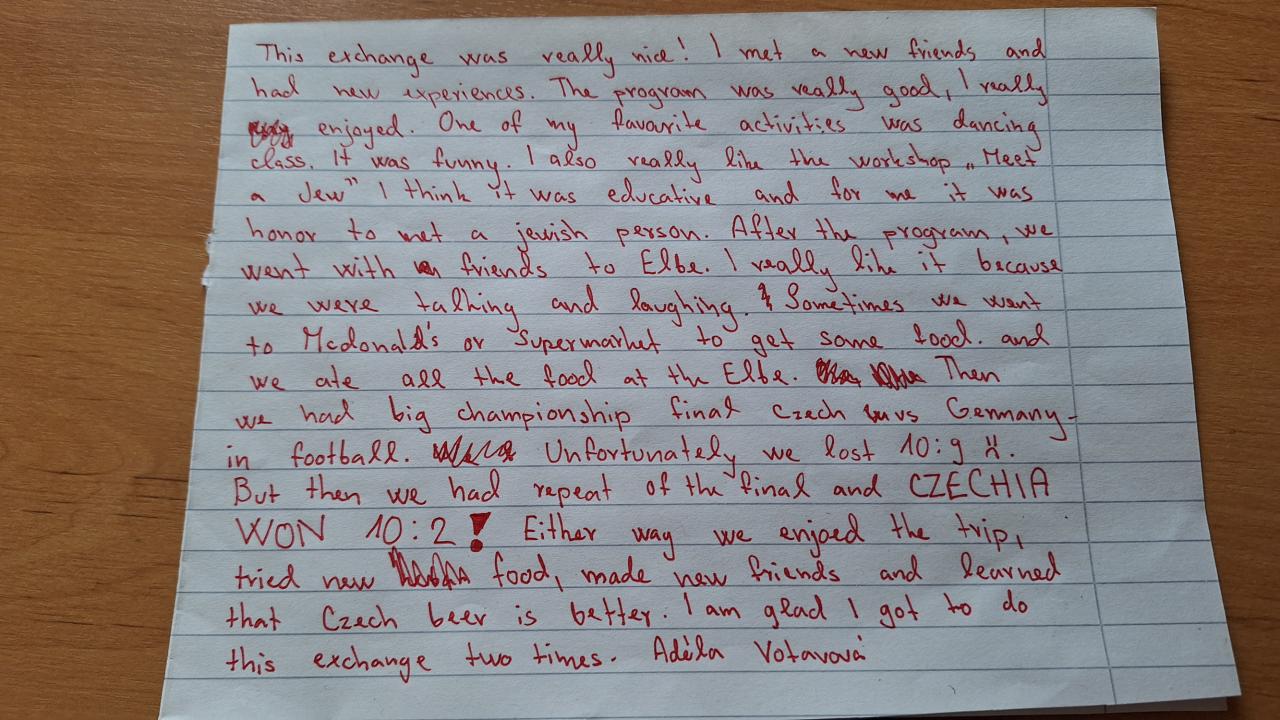 This exchange was really nice! I met a new friends and
had new experiences. The program was really good, I really
enjoyed. One of my favourite activities was dancing
class. It was funny. I also really like the workshop „Meet
a Jew" I think it was educative and for me it was
honor to met a jewish person. After the program, we
went with friends to Elbe. I really like it because
we were talking and laughing. Sometimes we went
to Mcdonald's or supermarket to get some food. and
we ate all the food at the Elbe. Then
we had big championship final Czech vs Germany-
in football. Unfortunately we lost 10:9 :(.
But then we had repeat of the final and CZECHIA
WON 10:2! Either way we enjoed the trip,
tried new food, made new friends and learned
that Czech beer is better. I am glad I got to do
this exchange two times. Adéla Votavová